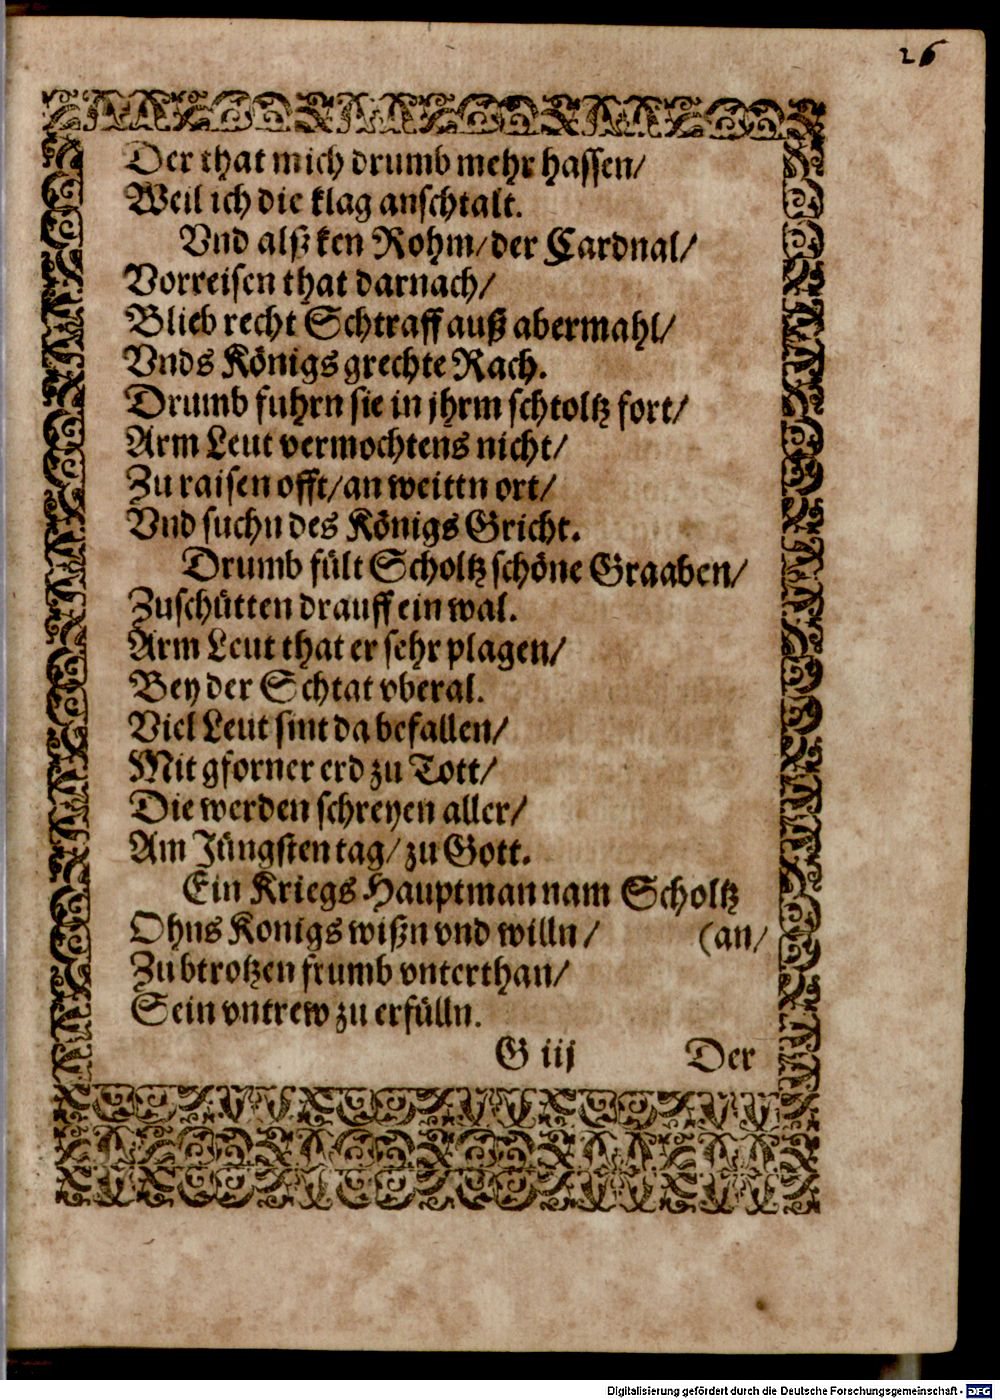 26
Der that mich drumb mehr hassen/
Weil ich die klag anschtalt.
Vnd alß ken Rohm/der Cardnal/
Vorreisen that darnach/
Blieb recht Schtraff auß abermahl/
Vnds Königs grechte Rach.
Drumb fuhrn sie in jhrm schtoltz fort/
Arm Leut vermochtens nicht/
Zu raisen offt/an weittn ort/
Vnd suchn des Königs Gricht.
Drumb fült Scholtz schöne Graaben/
Zuschütten drauff ein wal.
Arm Leut that er sehr plagen/
Bey der Schtat vberal.
Viel Leut sint da befallen/
Mit gforner erd zu Tott/
Die werden schreyen aller/
Am Jüngsten tag/zu Gott.
Ein Kriegs Hauptman nam Scholtz
Ohns Konigs wißn vnd willn/ (an/
Zu btrotzen frumb vnterthan/
Sein vntrew zu erfülln.
G iij Der
Digitalisierung gefördert durch die Deutsche Forschungsgemeinschaft - DFG